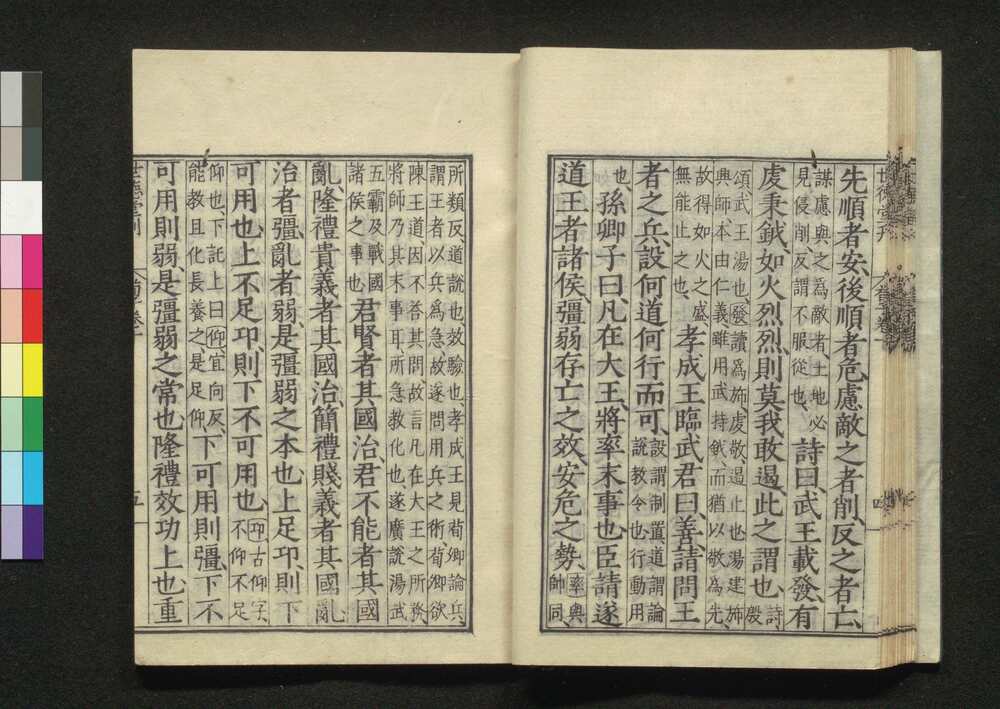 先順者安、後順者危、慮敵之者削、反之者亡、
謀慮與之為敵者、土地必
見侵削、反謂不服從也、
詩曰武王載發、有
虔秉鉞、如火烈烈、則莫我敢遏、此之謂也、
詩殷
頌、武王湯也、發讀為斾、虔敬、遏止也、湯建斾
興師、本由仁義、雖用武持鉞、而猶以敬為先、
故得如火之盛、
無能止之也、
孝成王臨武君曰善、請問王
者之兵、設何道何行而可、
設謂制置、道謂論
說教令也、行動用
也、
孫卿子曰、凡在大王、將率末事也、臣請遂
道王者諸侯、彊弱存亡之效、安危之勢、
率與
帥同、
所類反、道說也、效驗也、孝成王見荀卿論兵、
謂王者以兵為急、故遂問用兵之術、荀卿欲
陳王道、因不荅其問、故言凡在大王之所務、
將師乃其末事耳、所急教化也、遂廣說湯武
五霸及戰國
諸侯之事也、
君賢者其國治、君不能者其國
亂、隆禮貴義者其國治、簡禮賤義者其國亂、
治者彊、亂者弱、是彊弱之本也、上足卬、則下
可用也、上不足卬、則下不可用也、
卬古仰字、
不仰不足
仰也、下託上曰仰、宜向反、
能教且化、長養之、是足仰、
下可用則彊、下不
可用則弱、是彊弱之常也、隆禮效功上也、重